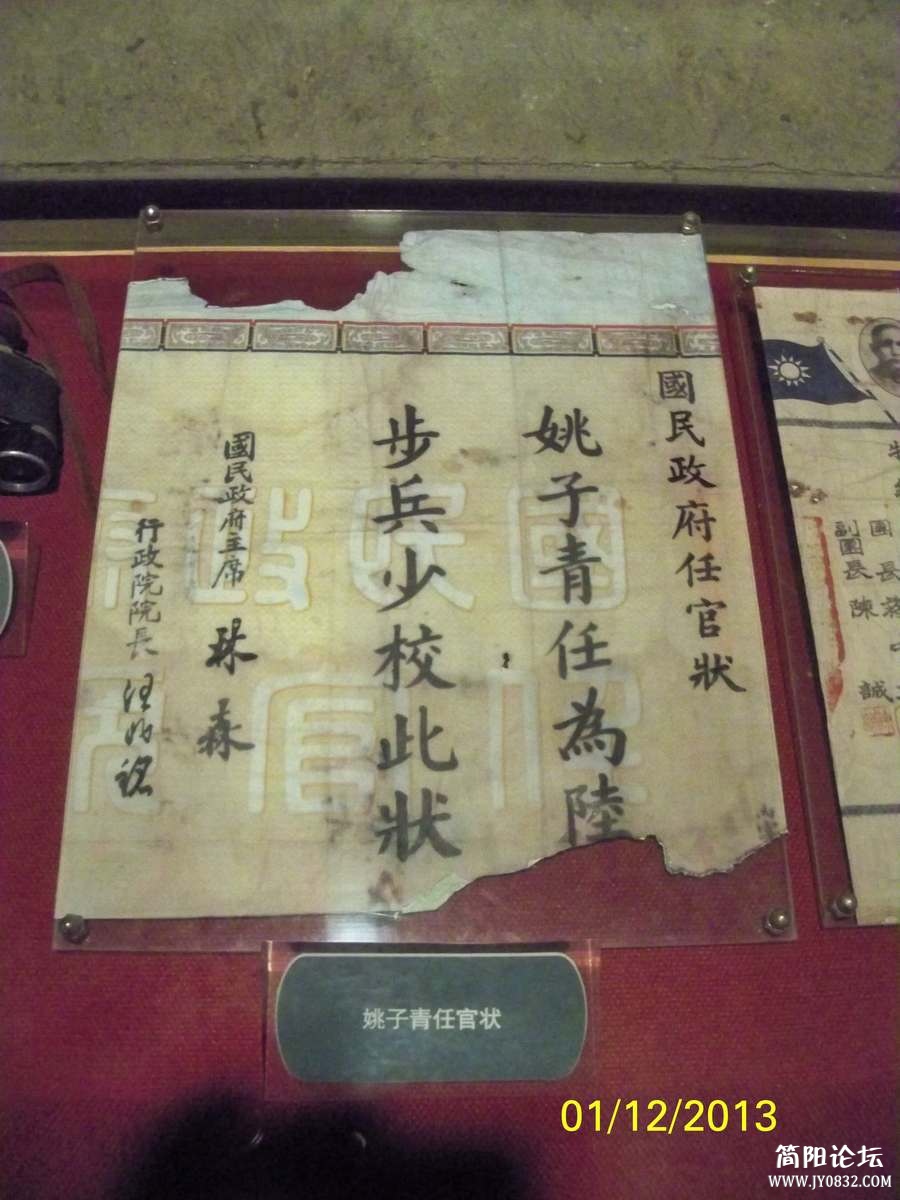 國民政府任官狀
姚子青任為陸
步兵少校此狀
國民政府主席 林森
行政院院長 汪兆銘
國民政府
官
副團長 陳
團長 蔣中
誠
姚子青任官状
01/12/2013
简阳论坛
www.JY0832.com